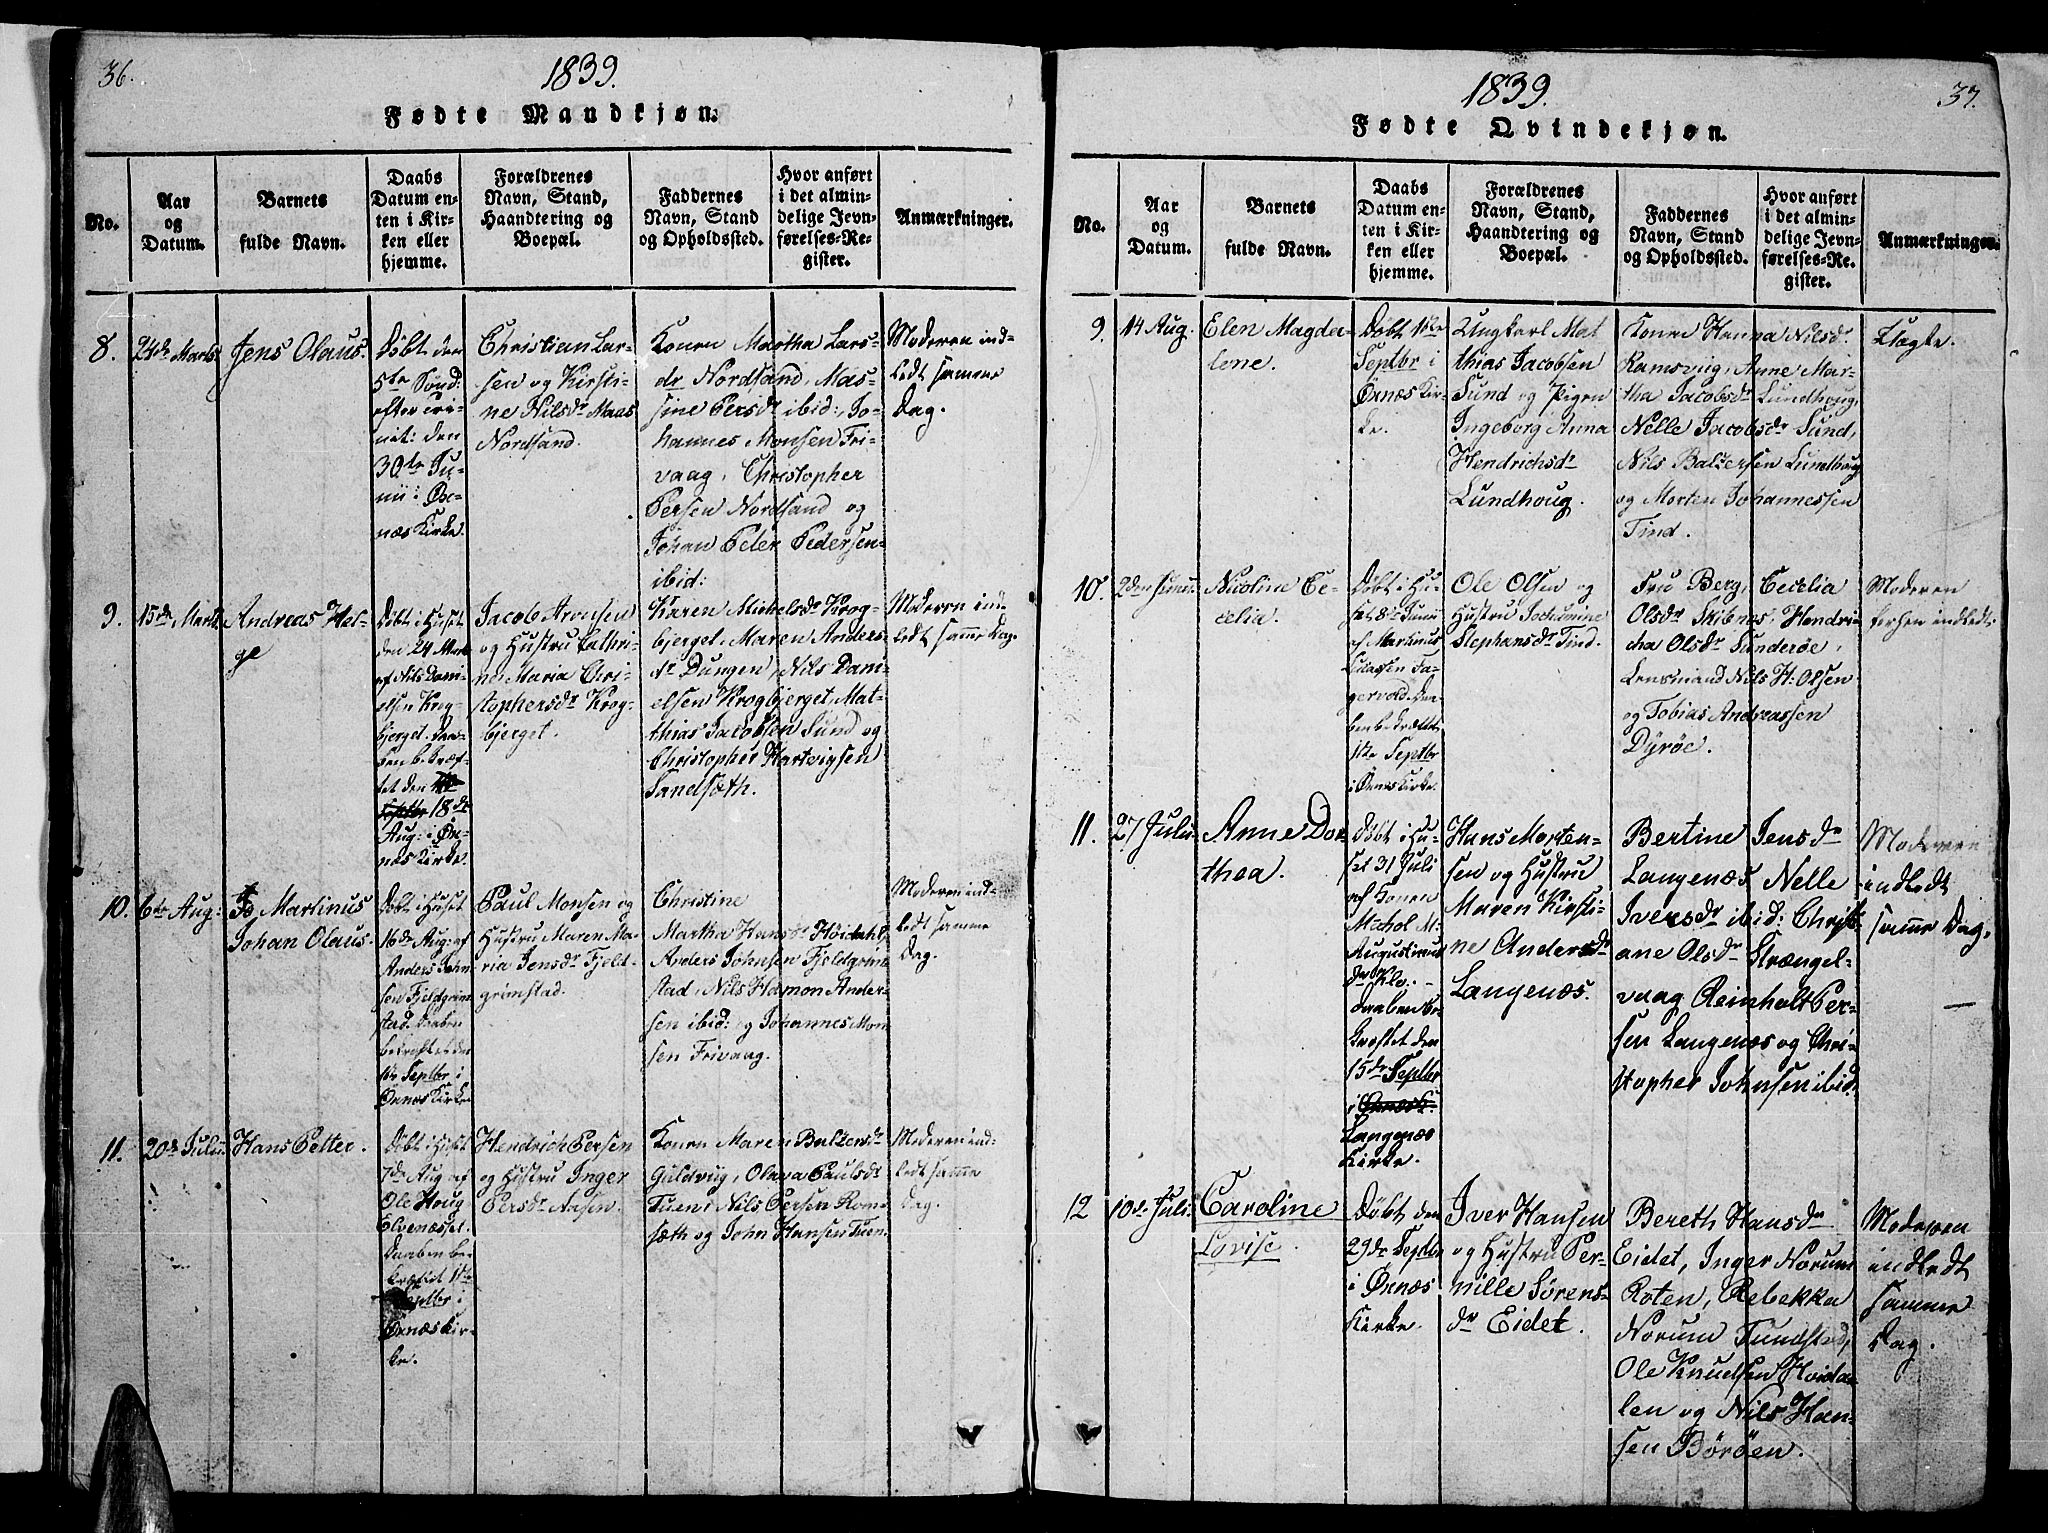 36.
1839.
Fødte Mandkjøn.
No.
Aar
og
Datum.
Barnets
fulde Navn.
Daabs
Datum en-
ten i Kir-
ken eller
hjemme.
Forældrenes
Navn, Stand,
Haandtering og
Boepæl.
Faddernes
Navn, Stand
og Opholdssted.
Hvor anført
i det almin-
delige Jevn-
førelses-Re-
gister.
Anmærkninger.
8.
24de Marts
Jens Olaus.
Døbt den
5te Sønd:
efter Tri-
nit: den
30te Ju-
nii i Øre-
næs Kirke.
Christian Lar-
sen og Kirsti-
ne Nilsdr Maas
Nordsand.
Konen Martha Lars-
dr Nordsand, Mas-
sine Persdr ibid:, Jo-
hannes Monsen Fri-
vaag, Christopher
Persen Nordsand og
Johan Peter Pedersen
ibid:
Moderen ind-
ledt samme
Dag.
9.
15de Marts
Andreas Hel-
ge
Døbt i Huset
den 24 Marts
af Nils Dani-
elsen Krog-
bjerget. Daa-
ben bekræf-
tet den
18de
Aug: i Øre-
næs Kirke.
Jacob Aronsen
og Hustru Cathri-
ne Maria Chri-
stophersdr Krog-
bjerget.
Karen Michelsdr Krog-
bjerget, Maren Anders-
dr Dungen, Nils Dani-
elsen Krogbjerget, Mat-
thias Jacobsen Sund og
Christopher Hartvigsen
Sandsæth.
Moderen ind-
ledt samme Dag.
10.
6te Aug:
Jo Martinus
Johan Olaus.
Døbt i Huset
16de Aug: af
Anders John-
sen Fjeldgrim-
stad. Daaben
bekræftet den
1ste Septbr i
Ørnæs Kirke
Paul Monsen og
Hustru Maren Ma-
ria Jensdr Fjeld-
grimstad.
Christine
Martha Hansdr Høidahl,
Anders Johnsen Fjeldgrim-
stad, Nils Hamon Ander-
sen ibid: og Johannes Mon-
sen Frivaag.
Moderen ind-
ledt samme
Dag.
11.
20de Juli
Hans Petter.
Døbt i Huset
7de Aug af
Ole Houg
Elvenæsset.
Daaben be-
kræftet 1ste
Septbr i
Ørnæs Kir-
ke.
Hendrich Persen
og Hustru Inger
Persdr Aasen.
Konen Maren Baltzersdr
Guldvig, Olava Paulsdr
Tuen, Nils Persen Rom-
sæth og John Hansen Tuen.
Moderen ind-
ledt samme
Dag.
37.
1839.
Fødte Qvindekjøn.
No.
Aar
og
Datum.
Barnets
fulde Navn.
Daabs
Datum en-
ten i Kir-
ken eller
hjemme.
Forældrenes
Navn, Stand,
Haandtering og
Boepæl.
Faddernes
Navn, Stand
og Opholdssted.
Hvor anført
i det almin-
delige Jevn-
førelses-Re-
gister.
Anmærkninger.
9.
14 Aug.
Elen Magda-
lene.
Døbt 1ste
Septbr i
Ørnæs Kir-
ke.
Ungkarl Mat
thias Jacobsen
Sund og Pigen
Ingeborg Anna
Hendrichsdr
Lundhoug.
Konen Hanna Nilsdr
Ramsviig, Anne Mar-
tha Jacobsdr Lundhoug,
Nelle Jacobsdr Sund,
Nils Baltzersen Lundhoug
og Morten Johannessen
Tind.
Uægte.
10.
2den Junii
Nicoline Ce-
celia.
Døbt i Hu-
set 8de Junii
af Markus
Eliassen Fa-
gervold. Daa-
ben bekræftet
1ste Septbr
i Ørnes Kirke.
Ole Olsen og
Hustru Jochumine
Stephansdr Tind.
Fru Berg, Cecelia
Olsdr Skibnæs, Hendri-
cha Olsdr Sunderøe,
Lensmand Nils H: Olsen
og Tobias Andreassen
Dyrøe.
Moderen
forhen indledt.
11.
27 Juli
Anne Dor-
thea.
Døbt i Hu-
set 31 Juli
af Konen
Michol M.
Augustinus
dr Klo.
Daaben be-
kræftet den
15de Septbr
i Ørnæs K.
Langenæs
Kirke.
Hans Morten-
sen og Hustru
Maren Kirsti-
ne Andersdr
Langenæs.
Bertine Jensdr
Langenæs, Nelle
Iversdr ibid: Christi-
ane Olsdr Strængel-
vaag, Reinholt Per-
sen Langenæs og Chri-
stopher Johnsen ibid.
Moderen
indledt
samme Dag.
12
10de Juli.
Caroline
Lovise.
Døbt den
29de Septbr
i Ørnæs
Kirke.
Iver Hansen
og Hustru Per-
nille Sørens-
dr Eidet.
Bereth Hansdr
Eidet, Inger Norum
Roten, Rebekka
Norum Tundstad,
Ole Knudsen Hvida-
len og Nils Han-
sen Børøen.
Moderen
indledt
samme
Dag.